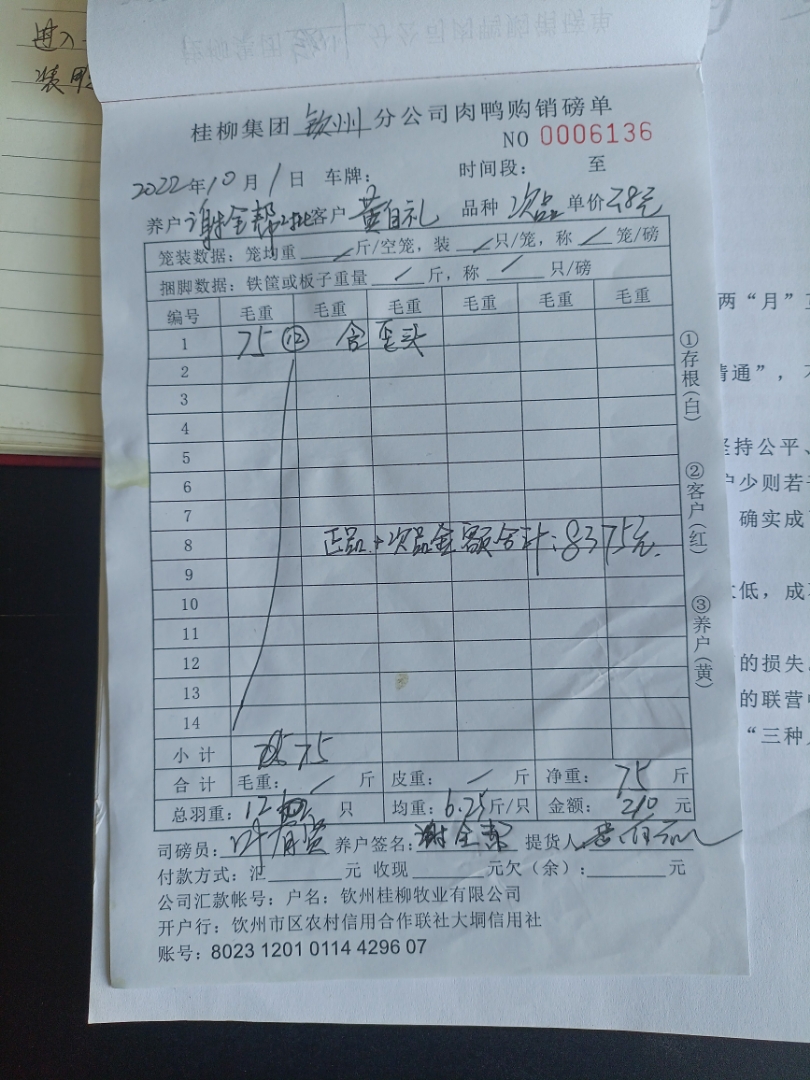 进入
装
桂柳集团 钦州 分公司肉鸭购销磅单
NO 0006136
2022年10月1日 车牌： 时间段： 至
养户 谢全帮 客户 黄自礼 品种 次品 单价 2.8元
笼装数据：笼均重 / 斤/空笼，装 / 只/笼，称 / 笼/磅
捆脚数据：铁筐或板子重量 / 斤，称 / 只/磅
编号 毛重 毛重 毛重 毛重 毛重 毛重
1 75 ⑫ 含歪头
2
3
4
5
6
7
8 正品+次品金额合计：8375元
9
10
11
12
13
14
小计 75
合计 毛重： / 斤 皮重： / 斤 净重： 75 斤
总羽重：12 只 均重：6.25斤/只 金额：210元
司磅员： 养户签名：谢全帮 提货人：
付款方式：汇 元 收现 元欠（余）： 元
公司汇款帐号：户名：钦州桂柳牧业有限公司
开户行：钦州市区农村信用合作联社大垌信用社
账号：8023 1201 0114 4296 07
①存根（白）
②客户（红）
③养户（黄）
两“月”
情通”，
坚持公平、
户少则若
确实成
低，成
的损失
的联营
“三种